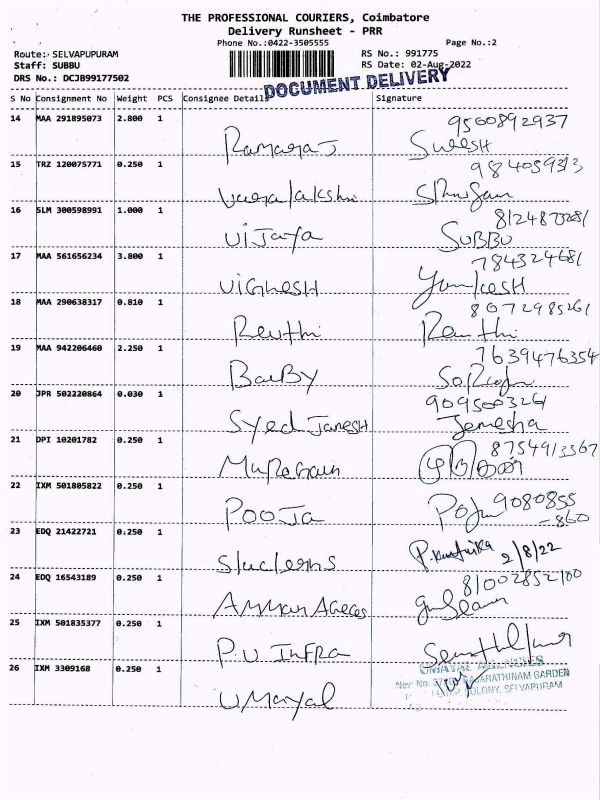 THE PROFESSIONAL COURIERS, Coimbatore
Delivery Runsheet - PRR
Phone No.:0422-3505555 Page No.:2
Route: SELVAPUPURAM RS No.: 991775
Staff: SUBBU RS Date: 02-Aug-2022
DRS No.: DCJB99177502
DOCUMENT DELIVERY
S No Consignment No Weight PCS Consignee Details Signature
14 MAA 291895073 2.800 1
9500892937
Ramaraj Suresh
15 TRZ 120075771 0.250 1
Varalakshmi
16 SLM 300598991 1.000 1
Vijaya SUBBU
17 MAA 561656234 3.800 1
784324681
VIGNESH
18 MAA 290638317 0.810 1
8072985261
Revthi Revthi
19 MAA 942206460 2.250 1
7639476354
BarBy
20 JPR 502220864 0.030 1
9095003261
Syed JAnesh
21 DPI 10201782 0.250 1
8754913367
22 IXM 501805822 0.250 1
9080855
POOJA Poju -860
23 EDQ 21422721 0.250 1
2/8/22
24 EDQ 16543189 0.250 1
81002852100
25 IXM 501835377 0.250 1
P.U INFRA
26 IXM 3309168 0.250 1
UMAYAL AGENCIES
RAJARATHINAM GARDEN
COLONY, SELVAPURAM
Umayal